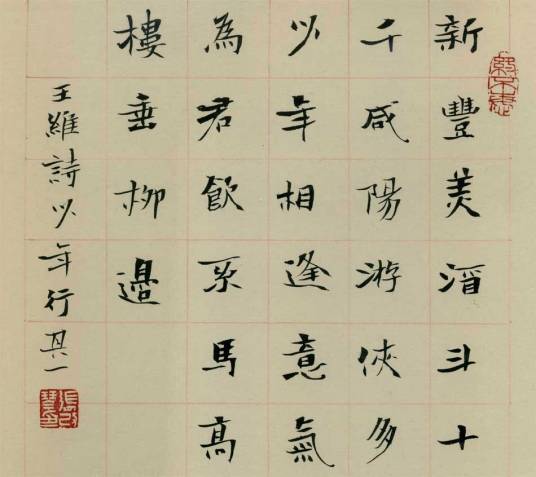 新豐美酒斗十
千咸陽游俠多
少年相逢意氣
為君飲系馬高
樓垂柳邊
王維詩少年行其一